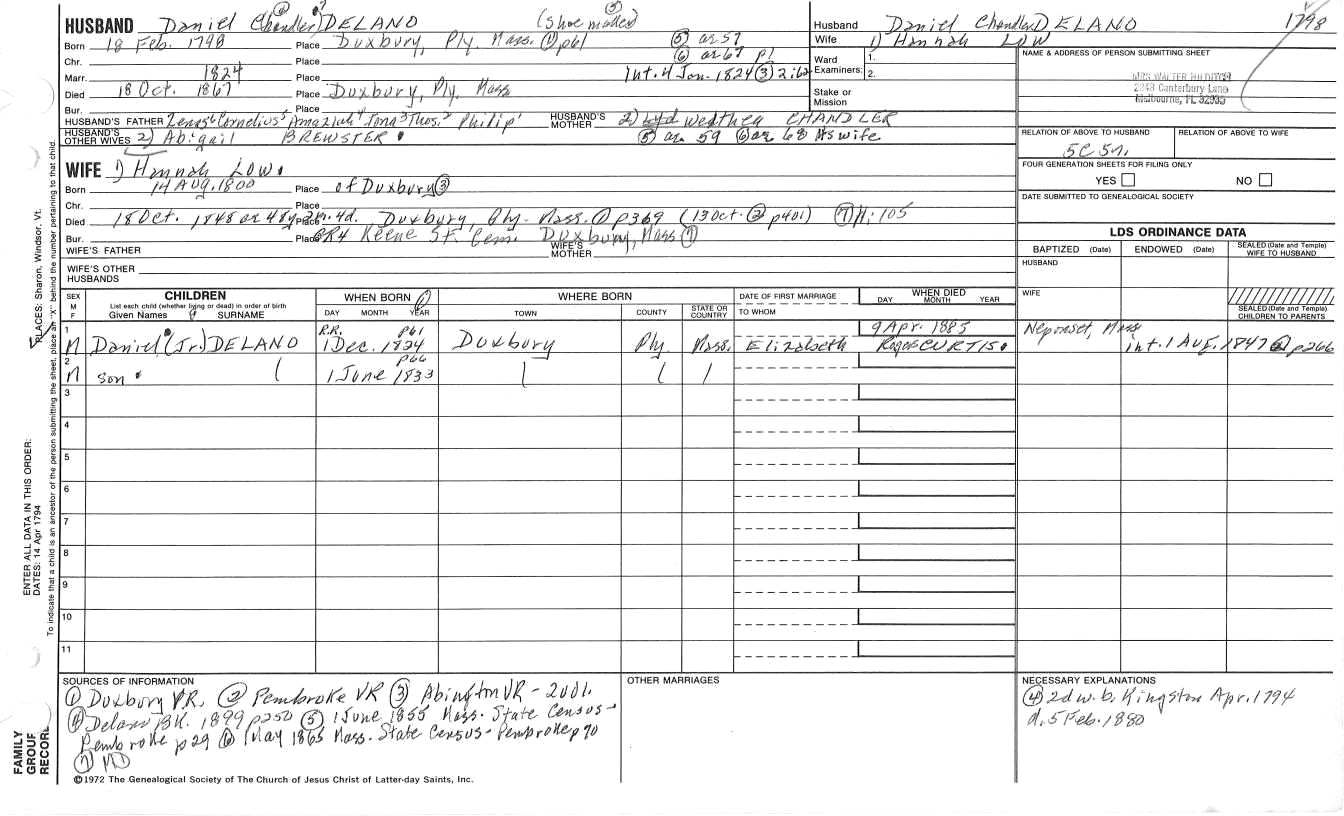 HUSBAND Daniel Chandler DELANO (Shoe maker) ⑤
Born 18 Feb. 1798 Place Duxbury, Ply. Mass. ① p61 ⑤ ae 57
⑥ ae 67 p1
Chr. Place
Marr. 1824 Place Int. 4 Jan. 1824 ③ 2:62
Died 18 Oct. 1867 Place Duxbury, Ply, Mass
Bur. Place
HUSBAND'S FATHER Zenas⁶ Cornelius⁵ Amaziah⁴ Jona³ Thos.² Philip¹ HUSBAND'S MOTHER 2) Wealthea CHANDLER
HUSBAND'S OTHER WIVES 2) Abigail BREWSTER ⑤ ae 59 ⑥ ae 68 As wife
WIFE 1) Hannah LOW
Born 14 Aug. 1800 Place of Duxbury ③
Chr. Place
Died 18 Oct. 1848 or 48y 2m. 4d. Place Duxbury, Ply. Mass. ① p369 (13 Oct. ② p401) ⑦ H: 105
Bur. Place GR4 Keene St. Cem. Duxbury, Mass ⑦
WIFE'S FATHER WIFE'S MOTHER
WIFE'S OTHER HUSBANDS
Husband Daniel Chandler DELANO 1798
Wife 1) Hannah LOW
Ward Examiners: 1.
2.
Stake or Mission
NAME & ADDRESS OF PERSON SUBMITTING SHEET
MRS WALTER HILDITCH
2243 Canterbury Lane
Melbourne, FL 32935
RELATION OF ABOVE TO HUSBAND RELATION OF ABOVE TO WIFE
5C 5r.
FOUR GENERATION SHEETS FOR FILING ONLY
YES NO
DATE SUBMITTED TO GENEALOGICAL SOCIETY
LDS ORDINANCE DATA
BAPTIZED (Date) ENDOWED (Date) SEALED (Date and Temple) WIFE TO HUSBAND
HUSBAND
WIFE
SEALED (Date and Temple) CHILDREN TO PARENTS
SEX M F CHILDREN List each child (whether living or dead) in order of birth Given Names SURNAME
WHEN BORN DAY MONTH YEAR
WHERE BORN TOWN COUNTY STATE OR COUNTRY
DATE OF FIRST MARRIAGE TO WHOM
WHEN DIED DAY MONTH YEAR
1 M Daniel (Jr.) DELANO R.R. p61 1 Dec. 1824 Duxbury Ply. Mass. Elizabeth Rogers CURTIS 9 Apr. 1885 Neponset, Mass int. 1 Aug. 1847 ② p266
2 M son p66 1 June 1833
3
4
5
6
7
8
9
10
11
SOURCES OF INFORMATION
① Duxbury VR. ② Pembroke VR ③ Abington VR - 2vol.
④ Delano BK. 1899 p250 ⑤ 1 June 1855 Mass. State Census -
Pembroke p29 ⑥ 1 May 1865 Mass. State Census - Pembroke p70
⑦
OTHER MARRIAGES
NECESSARY EXPLANATIONS
④ 2d w. b. Kingston Apr. 1794
d. 5 Feb. 1880
©1972 The Genealogical Society of The Church of Jesus Christ of Latter-day Saints, Inc.
FAMILY GROUP RECORD
ENTER ALL DATA IN THIS ORDER:
DATES: 14 Apr 1794
PLACES: Sharon, Windsor, Vt.
To indicate that a child is an ancestor of the person submitting the sheet, place an "X" behind the number pertaining to that child.